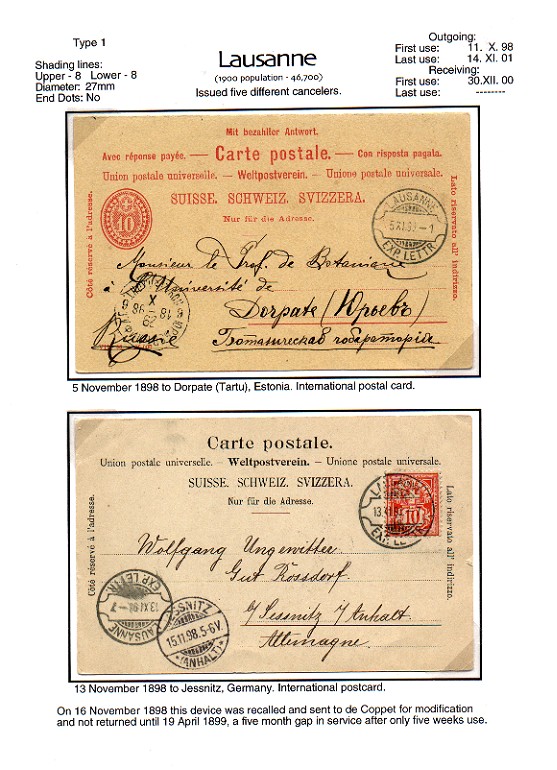 Type 1
Shading lines:
Upper - 8 Lower - 8
Diameter: 27mm
End Dots: No
Lausanne
(1900 population - 46,700)
Issued five different cancelers.
Outgoing:
First use: 11. X. 98
Last use: 14. XI. 01
Receiving:
First use: 30.XII. 00
Last use: --------
Mit bezahlter Antwort.
Avec réponse payée. — Carte postale. — Con risposta pagata.
Union postale universelle. — Weltpostverein. — Unione postale universale.
SUISSE. SCHWEIZ. SVIZZERA.
Nur für die Adresse.
Côté réservé à l'adresse.
Lato riservato all' indirizzo.
10
LAUSANNE
5.XI.98 – 1
EXP. LETTR.
Monsieur le Prof. de Botanique
à l'Université de
Dorpate (Юрьевъ)
Russie
5 November 1898 to Dorpate (Tartu), Estonia. International postal card.
Carte postale.
Union postale universelle. – Weltpostverein. – Unione postale universale.
SUISSE. SCHWEIZ. SVIZZERA.
Nur für die Adresse.
Côté réservé à l'adresse.
Lato riservato all' indirizzo.
10
13.XI.98
EXP. LETTR.
Wolfgang Ungewitter
Gut Rossdorf
b/ Jessnitz i/ Anhalt
Allemagne
LAUSANNE
13.XI.98 – 1
EXP. LETTR.
JESSNITZ
15.11.98.5-6V.
*(ANHALT)*
13 November 1898 to Jessnitz, Germany. International postcard.
On 16 November 1898 this device was recalled and sent to de Coppet for modification
and not returned until 19 April 1899, a five month gap in service after only five weeks use.